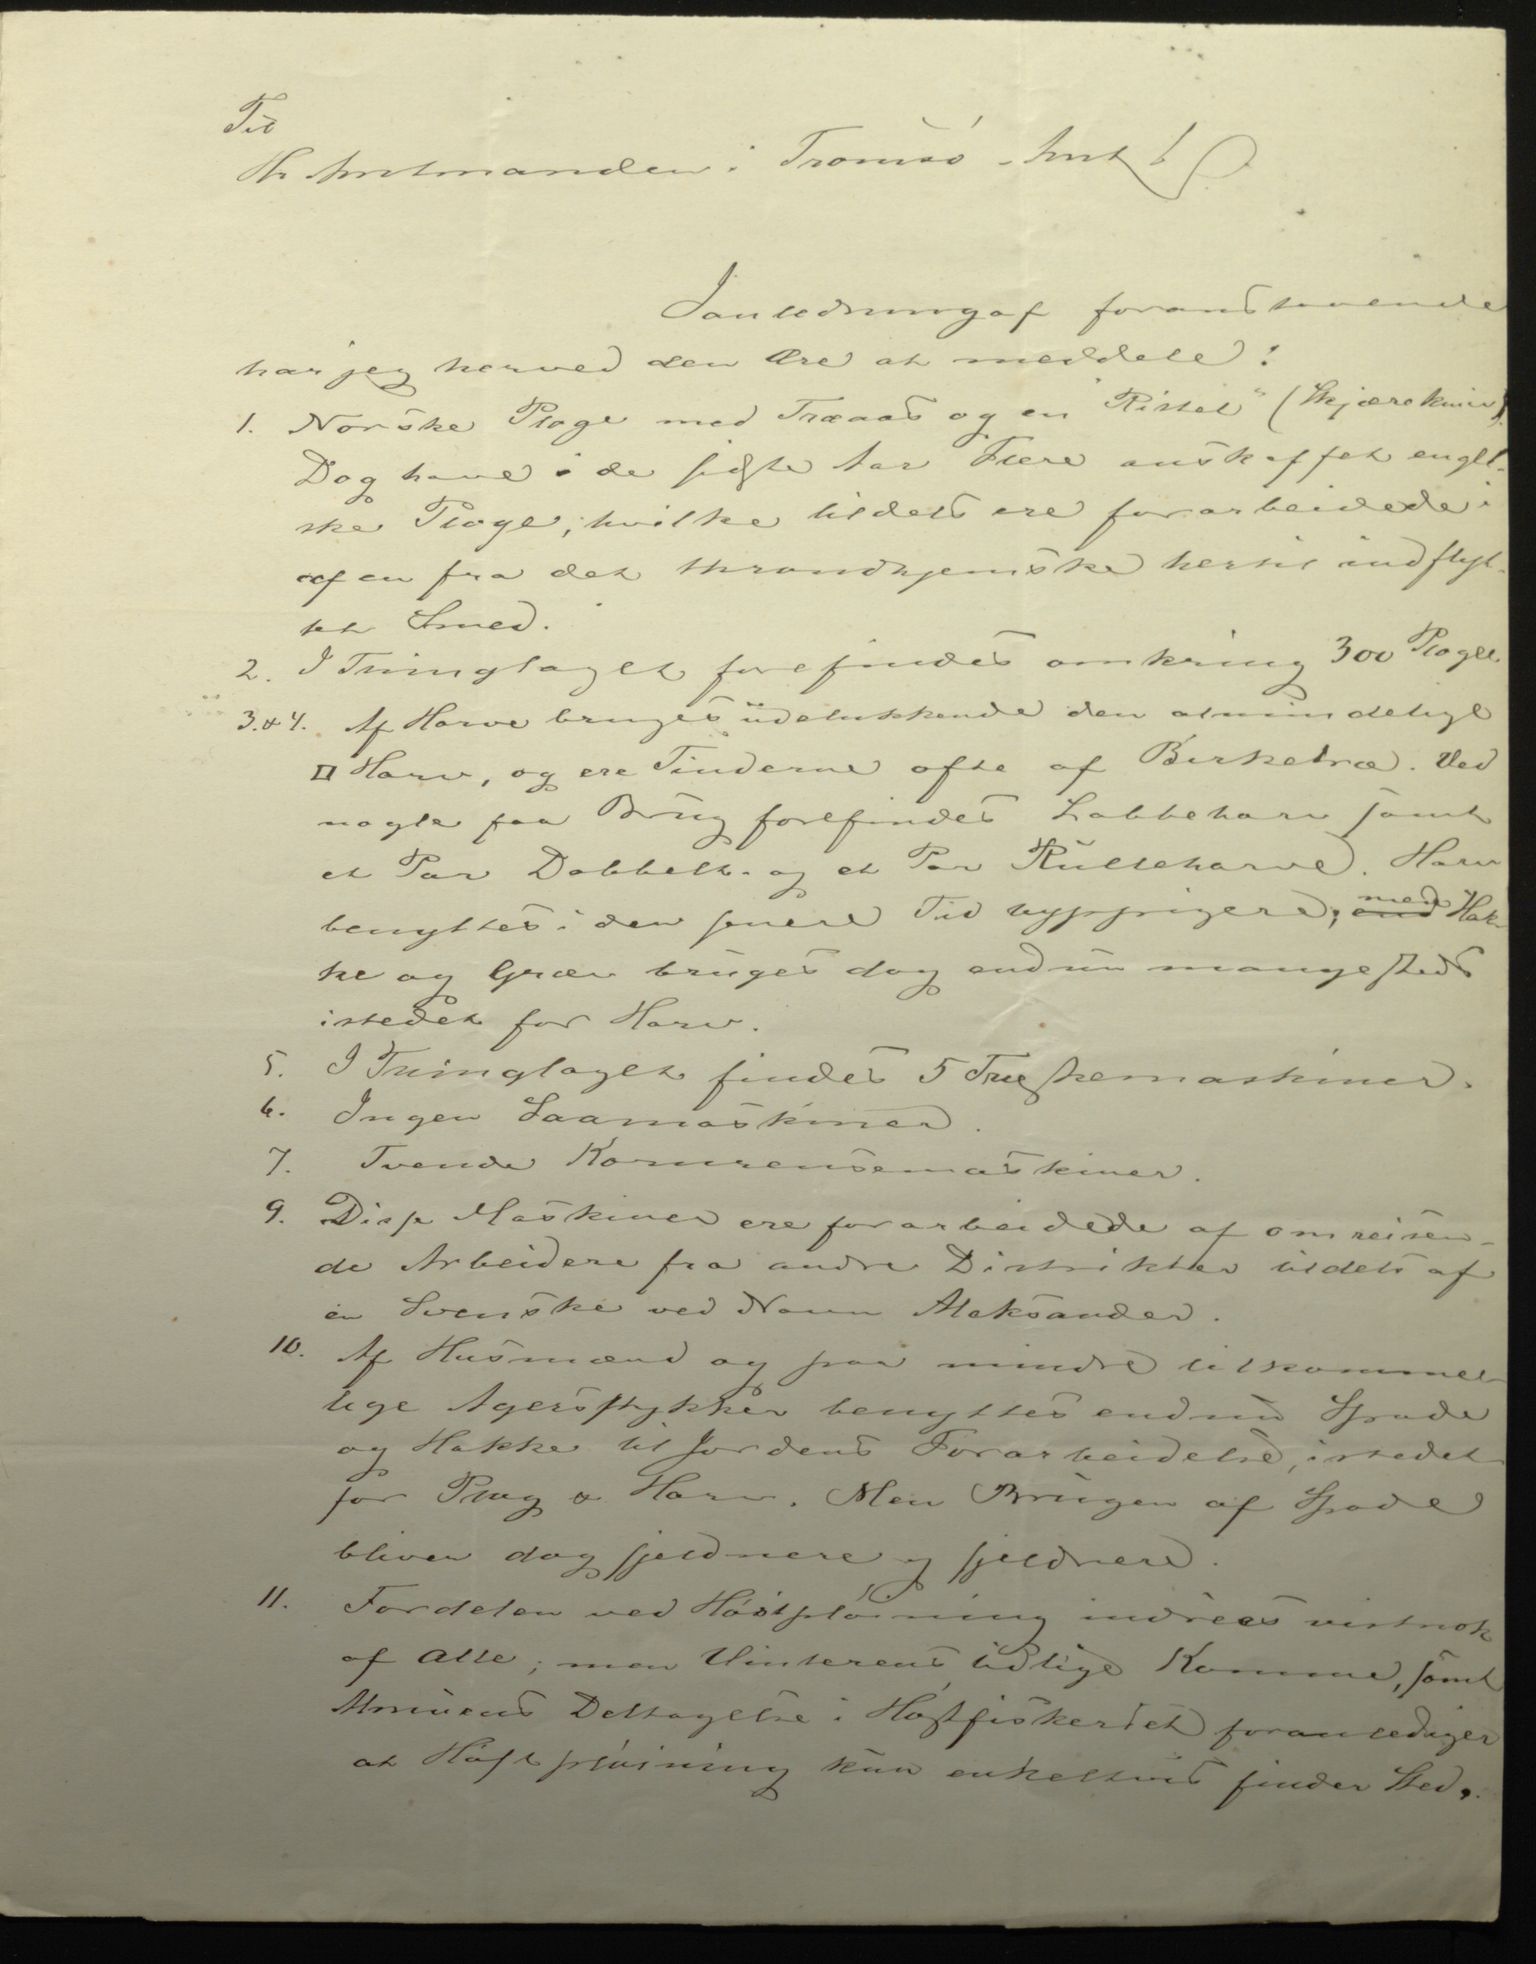 Til
Hr Amtmanden i Tromsø Amt
I anledning af foranstaaende
har jeg herved den Ære at meddele:
1. Norske Ploge med Træaas og en "Ristel" (Skjærekniv).
Dog have i de sidste Aar Flere anskaffet engel-
ske Ploge, hvilke tildels ere forarbeidede i
af en fra det throndhjemske hertil indflyt-
tet Smed.
2. I Thinglaget forefindes omkring 300 Ploge
3. & 4. Af Harve bruges udelukkende den almindelige
Harv, og ere Tinderne ofte af Birketræ. Ved
nogle faa Brug forefindes Labbeharv samt
et Par Dobbelt- og et Par Rulleharve. Harv
benyttes i den senere Tid hyppigere; men Hak-
ke og Græv bruges dog endnu mangesteds
istedet for Harv.
5. I Thinglaget findes 5 Træskemaskiner.
6. Ingen Saamaskiner.
7. Tvende Kornrensemaskiner.
9. Disse Maskiner ere forarbeidede af omreisen-
de Arbeidere fra andre Distrikter tildels af
en Svenske ved Navn Aleksander.
10. Af Husmænd og paa mindre utilkomme-
lige Agerstykker benyttes endnu Spade
og Hakke til Jordens Forarbeidelse, istedet
for Plog & Harv. Men Brugen af Spade
bliver dog sjeldnere og sjeldnere.
11. Fordelen ved Høstpløining indsees vistnok
af Alle; men Vinterens tidlige Komme, samt
Almuens Deltagelse i Høstfiskeriet foranlediger
at Høstpløining kun enkeltvis finder Sted.